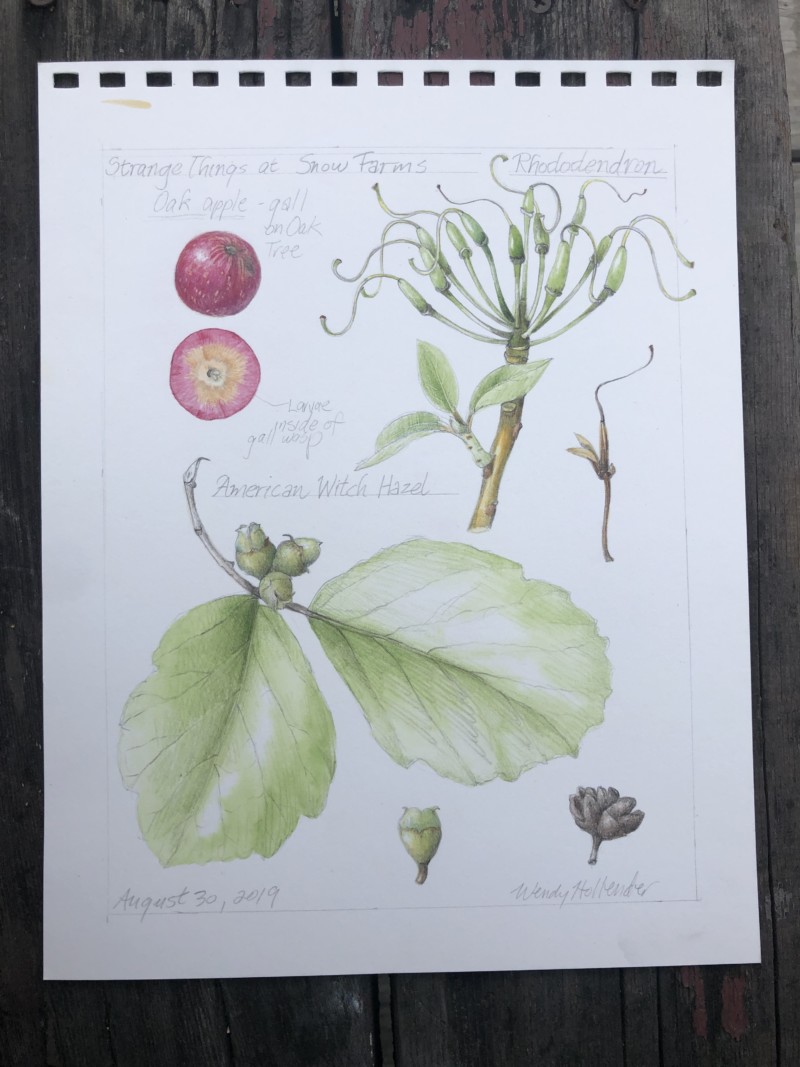 Strange Things at Snow Farms
Rhododendron
Oak apple - gall
on Oak
Tree
Larvae
inside of
gall wasp
American Witch Hazel
August 30, 2019
Wendy Hollender